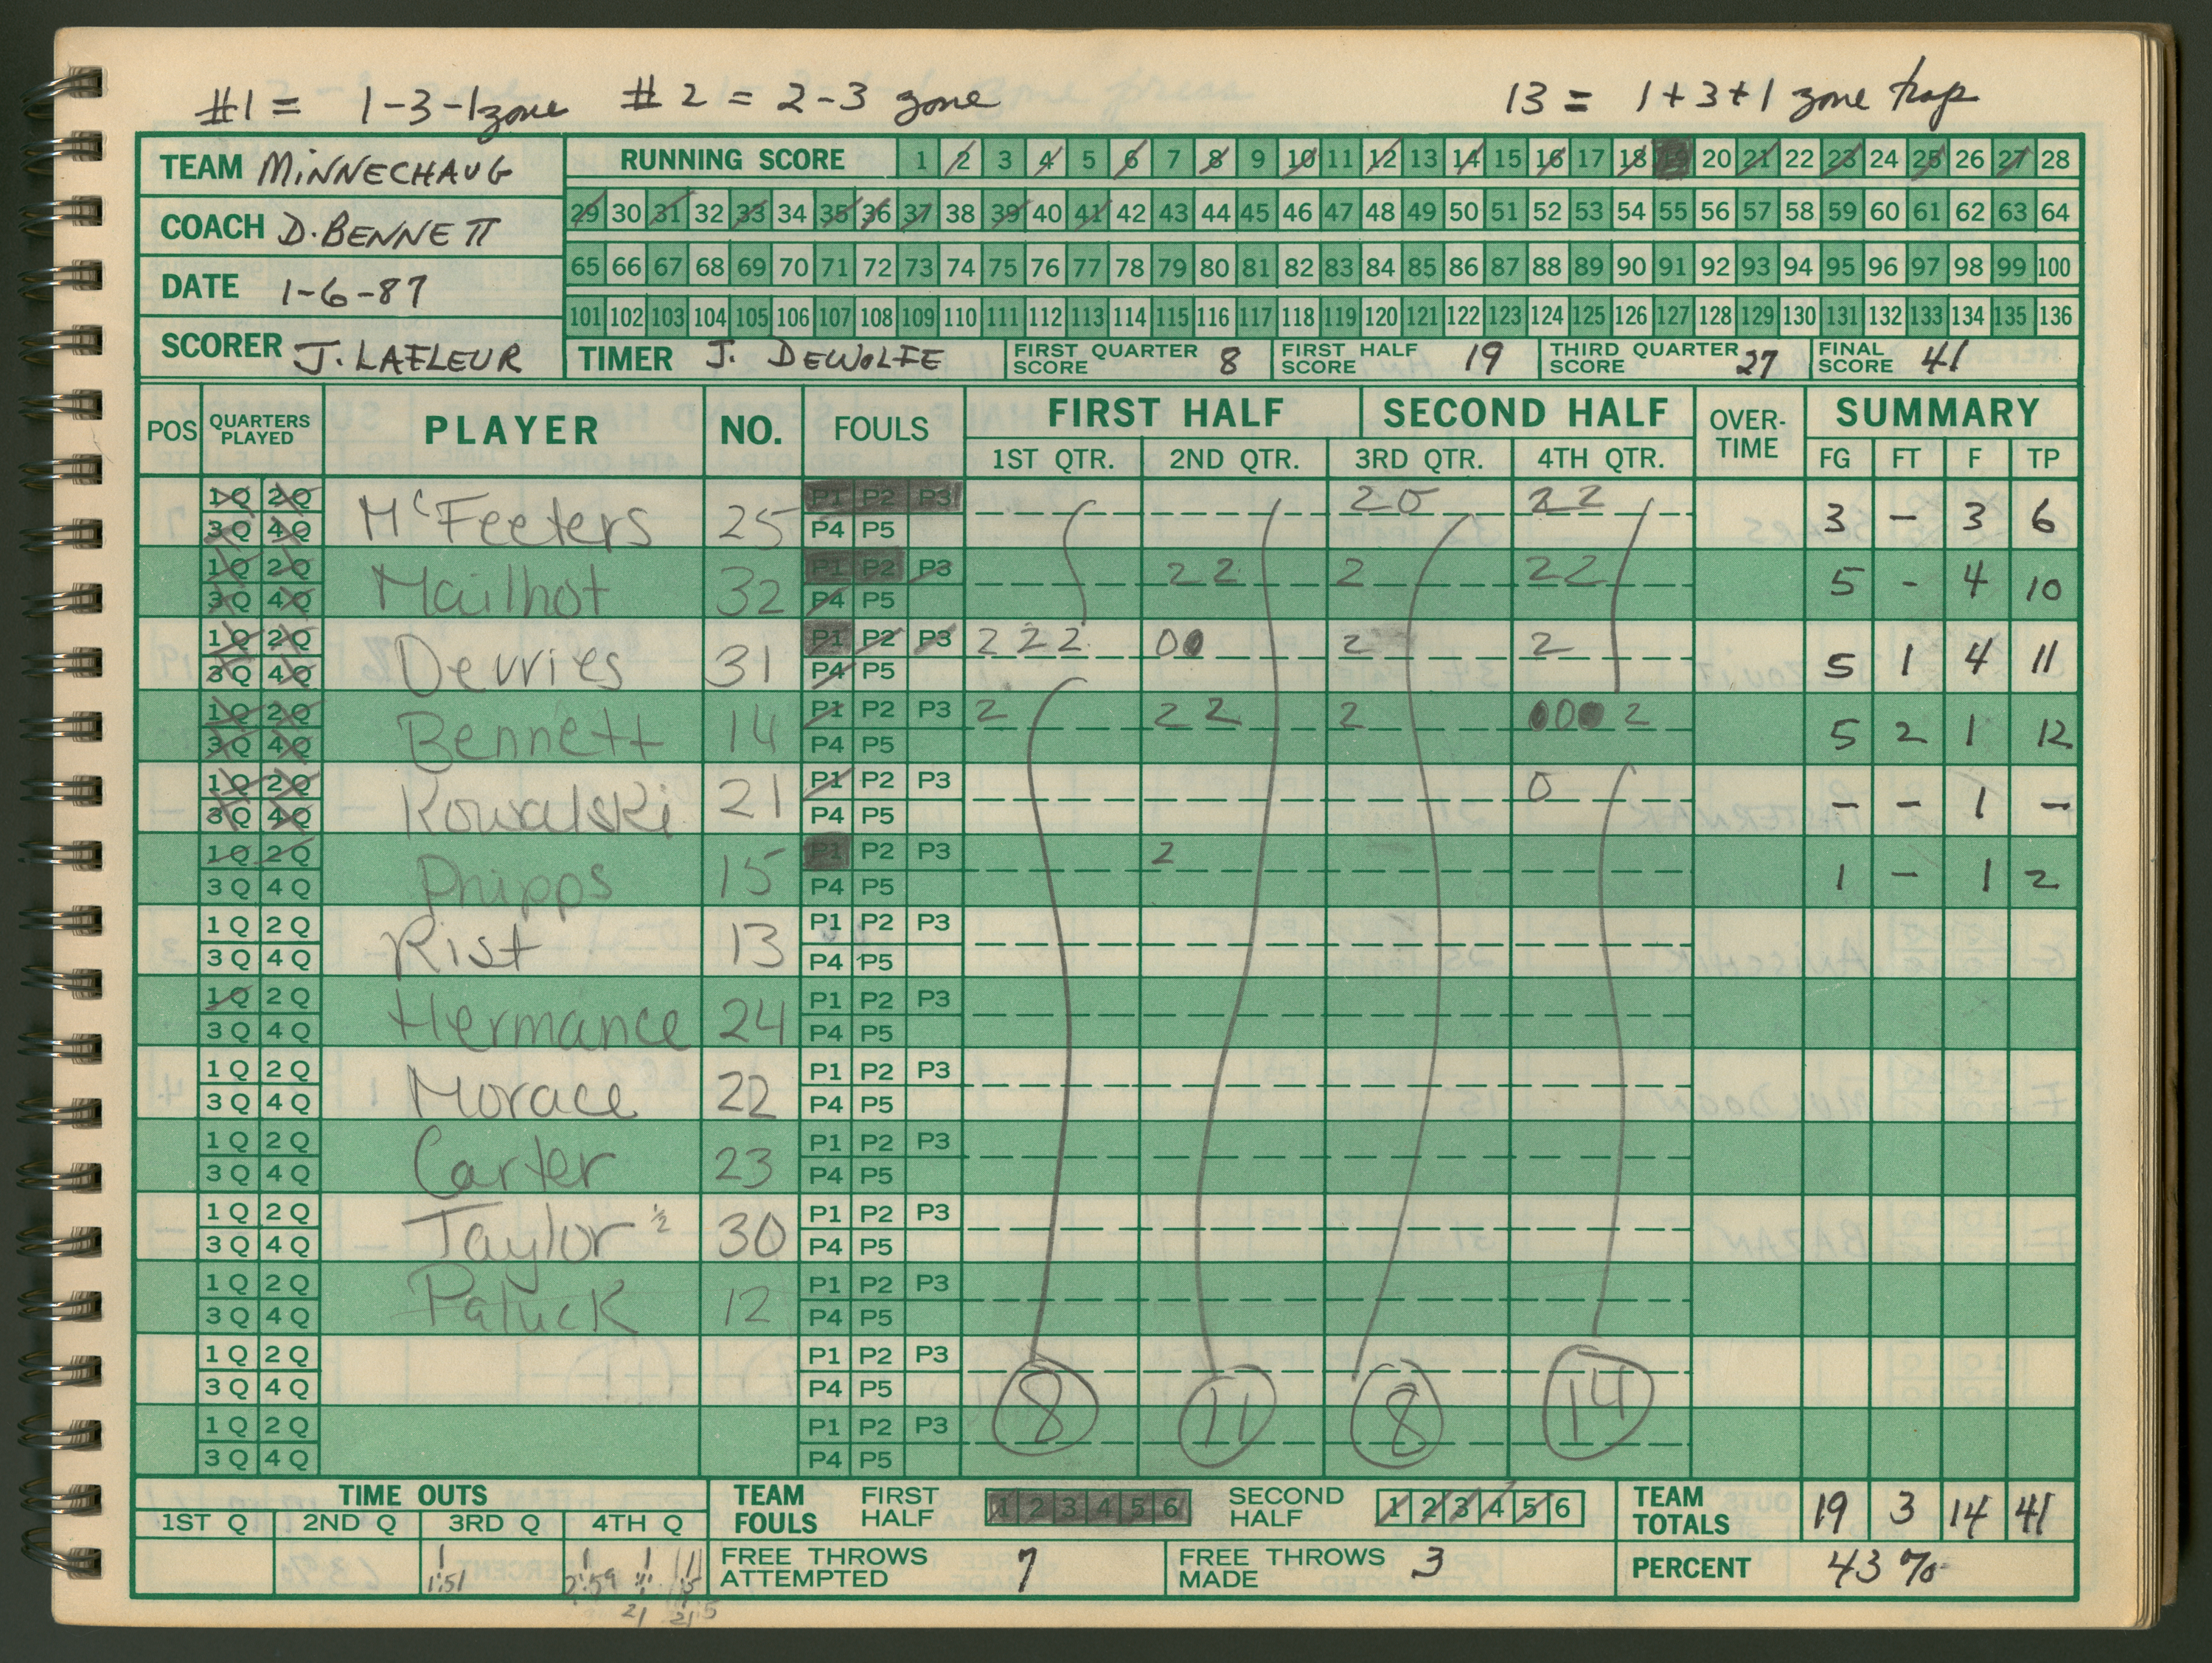 #1 = 1-3-1 zone #2 = 2-3 zone 13 = 1+3+1 zone trap
TEAM MINNECHAUG
COACH D. BENNETT
DATE 1-6-87
SCORER J. LAFLEUR
RUNNING SCORE 1 2 3 4 5 6 7 8 9 10 11 12 13 14 15 16 17 18 19 20 21 22 23 24 25 26 27 28
29 30 31 32 33 34 35 36 37 38 39 40 41 42 43 44 45 46 47 48 49 50 51 52 53 54 55 56 57 58 59 60 61 62 63 64
65 66 67 68 69 70 71 72 73 74 75 76 77 78 79 80 81 82 83 84 85 86 87 88 89 90 91 92 93 94 95 96 97 98 99 100
101 102 103 104 105 106 107 108 109 110 111 112 113 114 115 116 117 118 119 120 121 122 123 124 125 126 127 128 129 130 131 132 133 134 135 136
TIMER J. DEWOLFE FIRST QUARTER SCORE 8 FIRST HALF SCORE 19 THIRD QUARTER SCORE 27 FINAL SCORE 41
POS QUARTERS PLAYED PLAYER NO. FOULS FIRST HALF SECOND HALF OVER-TIME SUMMARY
1ST QTR. 2ND QTR. 3RD QTR. 4TH QTR. FG FT F TP
1Q 2Q McFeeters 25 P1 P2 P3 20 22 3 - 3 6
3Q 4Q P4 P5
1Q 2Q Mailhot 32 P1 P2 P3 22 2 22 5 - 4 10
3Q 4Q P4 P5
1Q 2Q Devries 31 P1 P2 P3 222 00 2 2 5 1 4 11
3Q 4Q P4 P5
1Q 2Q Bennett 14 P1 P2 P3 2 22 2 000 2 5 2 1 12
3Q 4Q P4 P5
1Q 2Q Kowalski 21 P1 P2 P3 0 - - 1 -
3Q 4Q P4 P5
1Q 2Q Phipps 15 P1 P2 P3 2 1 - 1 2
3Q 4Q P4 P5
1Q 2Q Rist 13 P1 P2 P3
3Q 4Q P4 P5
1Q 2Q Hermance 24 P1 P2 P3
3Q 4Q P4 P5
1Q 2Q Morace 22 P1 P2 P3
3Q 4Q P4 P5
1Q 2Q Carter 23 P1 P2 P3
3Q 4Q P4 P5
1Q 2Q Taylor ½ 30 P1 P2 P3
3Q 4Q P4 P5
1Q 2Q Paluck 12 P1 P2 P3
3Q 4Q P4 P5
1Q 2Q P1 P2 P3
3Q 4Q P4 P5
8 11 8 14
1Q 2Q P1 P2 P3
3Q 4Q P4 P5
TIME OUTS TEAM FOULS FIRST HALF 1 2 3 4 5 6 SECOND HALF 1 2 3 4 5 6 TEAM TOTALS 19 3 14 41
1ST Q 2ND Q 3RD Q 4TH Q
1:51 2:59 FREE THROWS ATTEMPTED 7 FREE THROWS MADE 3 PERCENT 43%